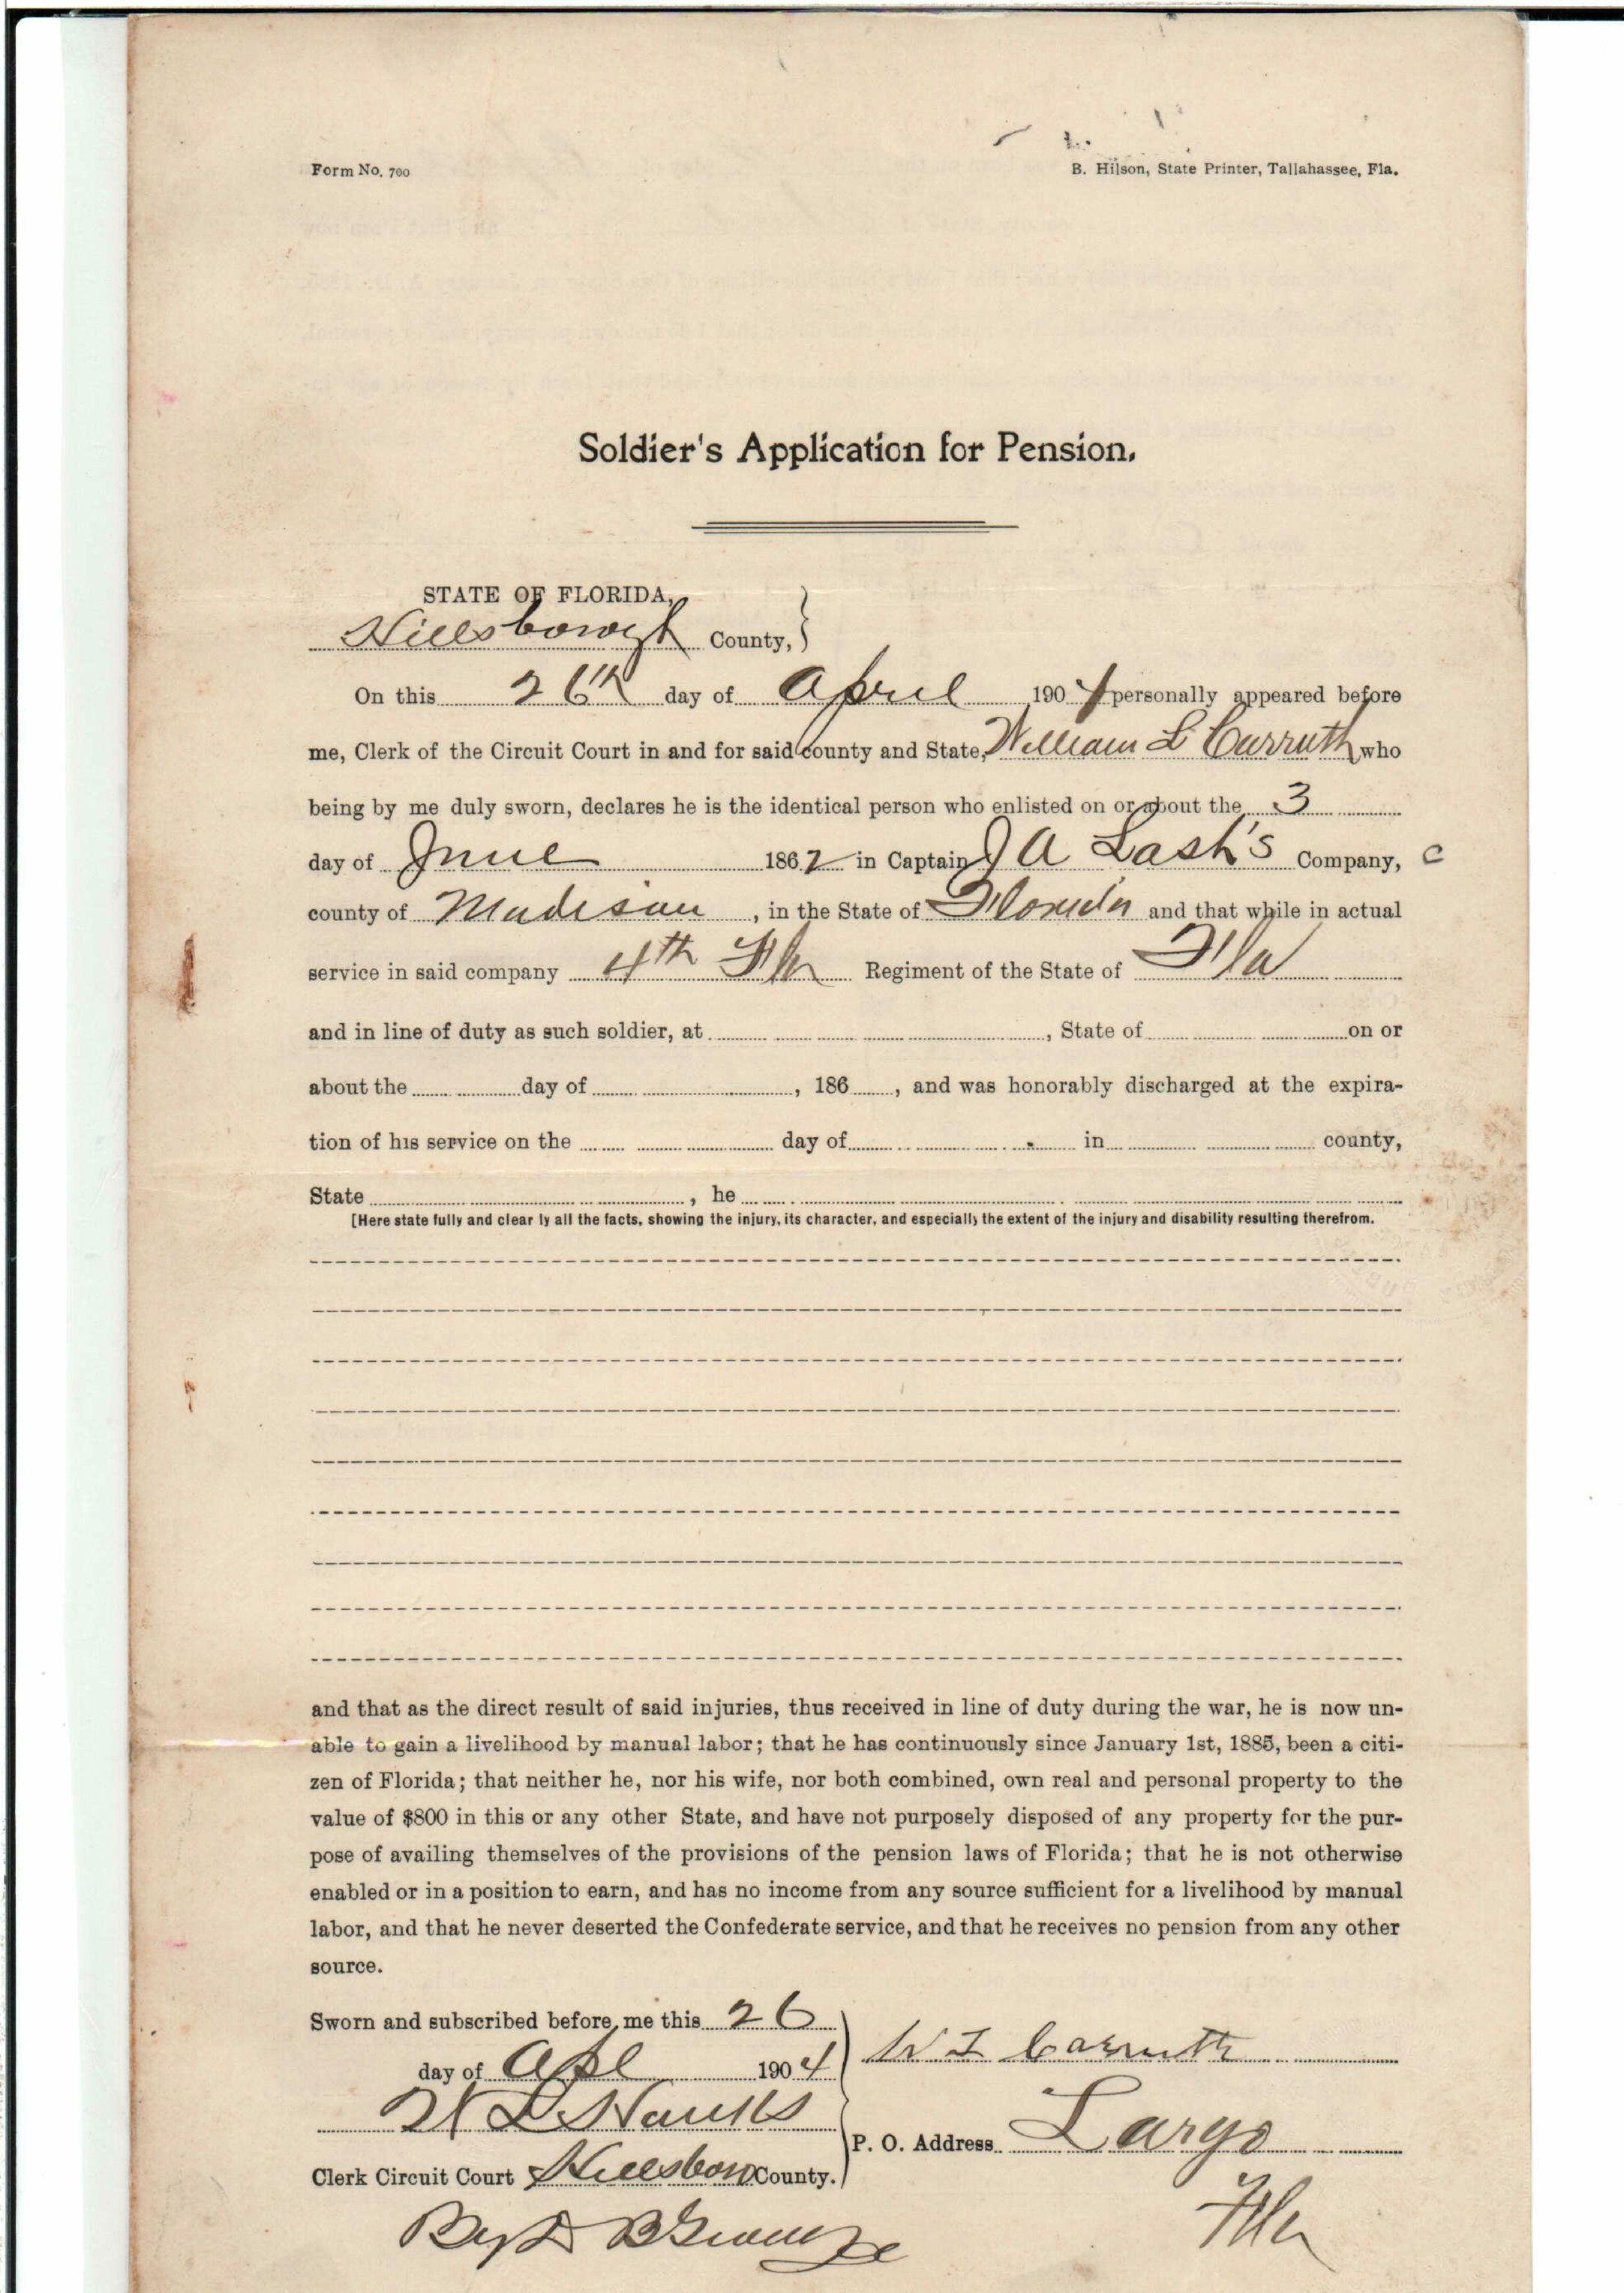 Form No. 700
B. Hilson, State Printer, Tallahassee, Fla.
Soldier's Application for Pension.
STATE OF FLORIDA,
Hillsborough County,
On this 26th day of April 1904 personally appeared before
me, Clerk of the Circuit Court in and for said county and State, William L Carruth who
being by me duly sworn, declares he is the identical person who enlisted on or about the 3
day of June 1862 in Captain J A Lash's Company, C
county of Madison, in the State of Florida and that while in actual
service in said company 4th Fla Regiment of the State of Fla
and in line of duty as such soldier, at , State of on or
about the day of , 186 , and was honorably discharged at the expira-
tion of his service on the day of in county,
State , he
[Here state fully and clear ly all the facts, showing the injury, its character, and especially the extent of the injury and disability resulting therefrom.
and that as the direct result of said injuries, thus received in line of duty during the war, he is now un-
able to gain a livelihood by manual labor; that he has continuously since January 1st, 1885, been a citi-
zen of Florida; that neither he, nor his wife, nor both combined, own real and personal property to the
value of $800 in this or any other State, and have not purposely disposed of any property for the pur-
pose of availing themselves of the provisions of the pension laws of Florida; that he is not otherwise
enabled or in a position to earn, and has no income from any source sufficient for a livelihood by manual
labor, and that he never deserted the Confederate service, and that he receives no pension from any other
source.
Sworn and subscribed before me this 26
day of Apl 1904
W L Carruth
P. O. Address Largo
Fla
Clerk Circuit Court Hillsboro County.
By